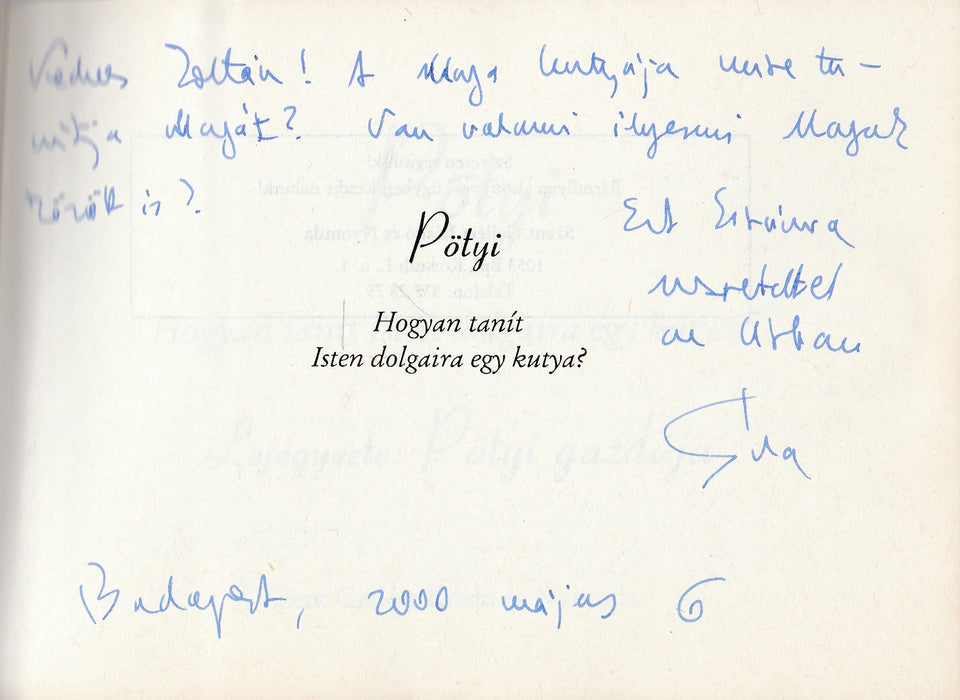 Kedves Zoltán! A Maga kutyája mire ta-
nítja Magát? Van valami ilyesmi Maguk
között is?
Pötyi
Ezt Esténra
szeretettel
az Úrban
Éva
Hogyan tanít
Isten dolgaira egy kutya?
Budapest, 2000 május 6